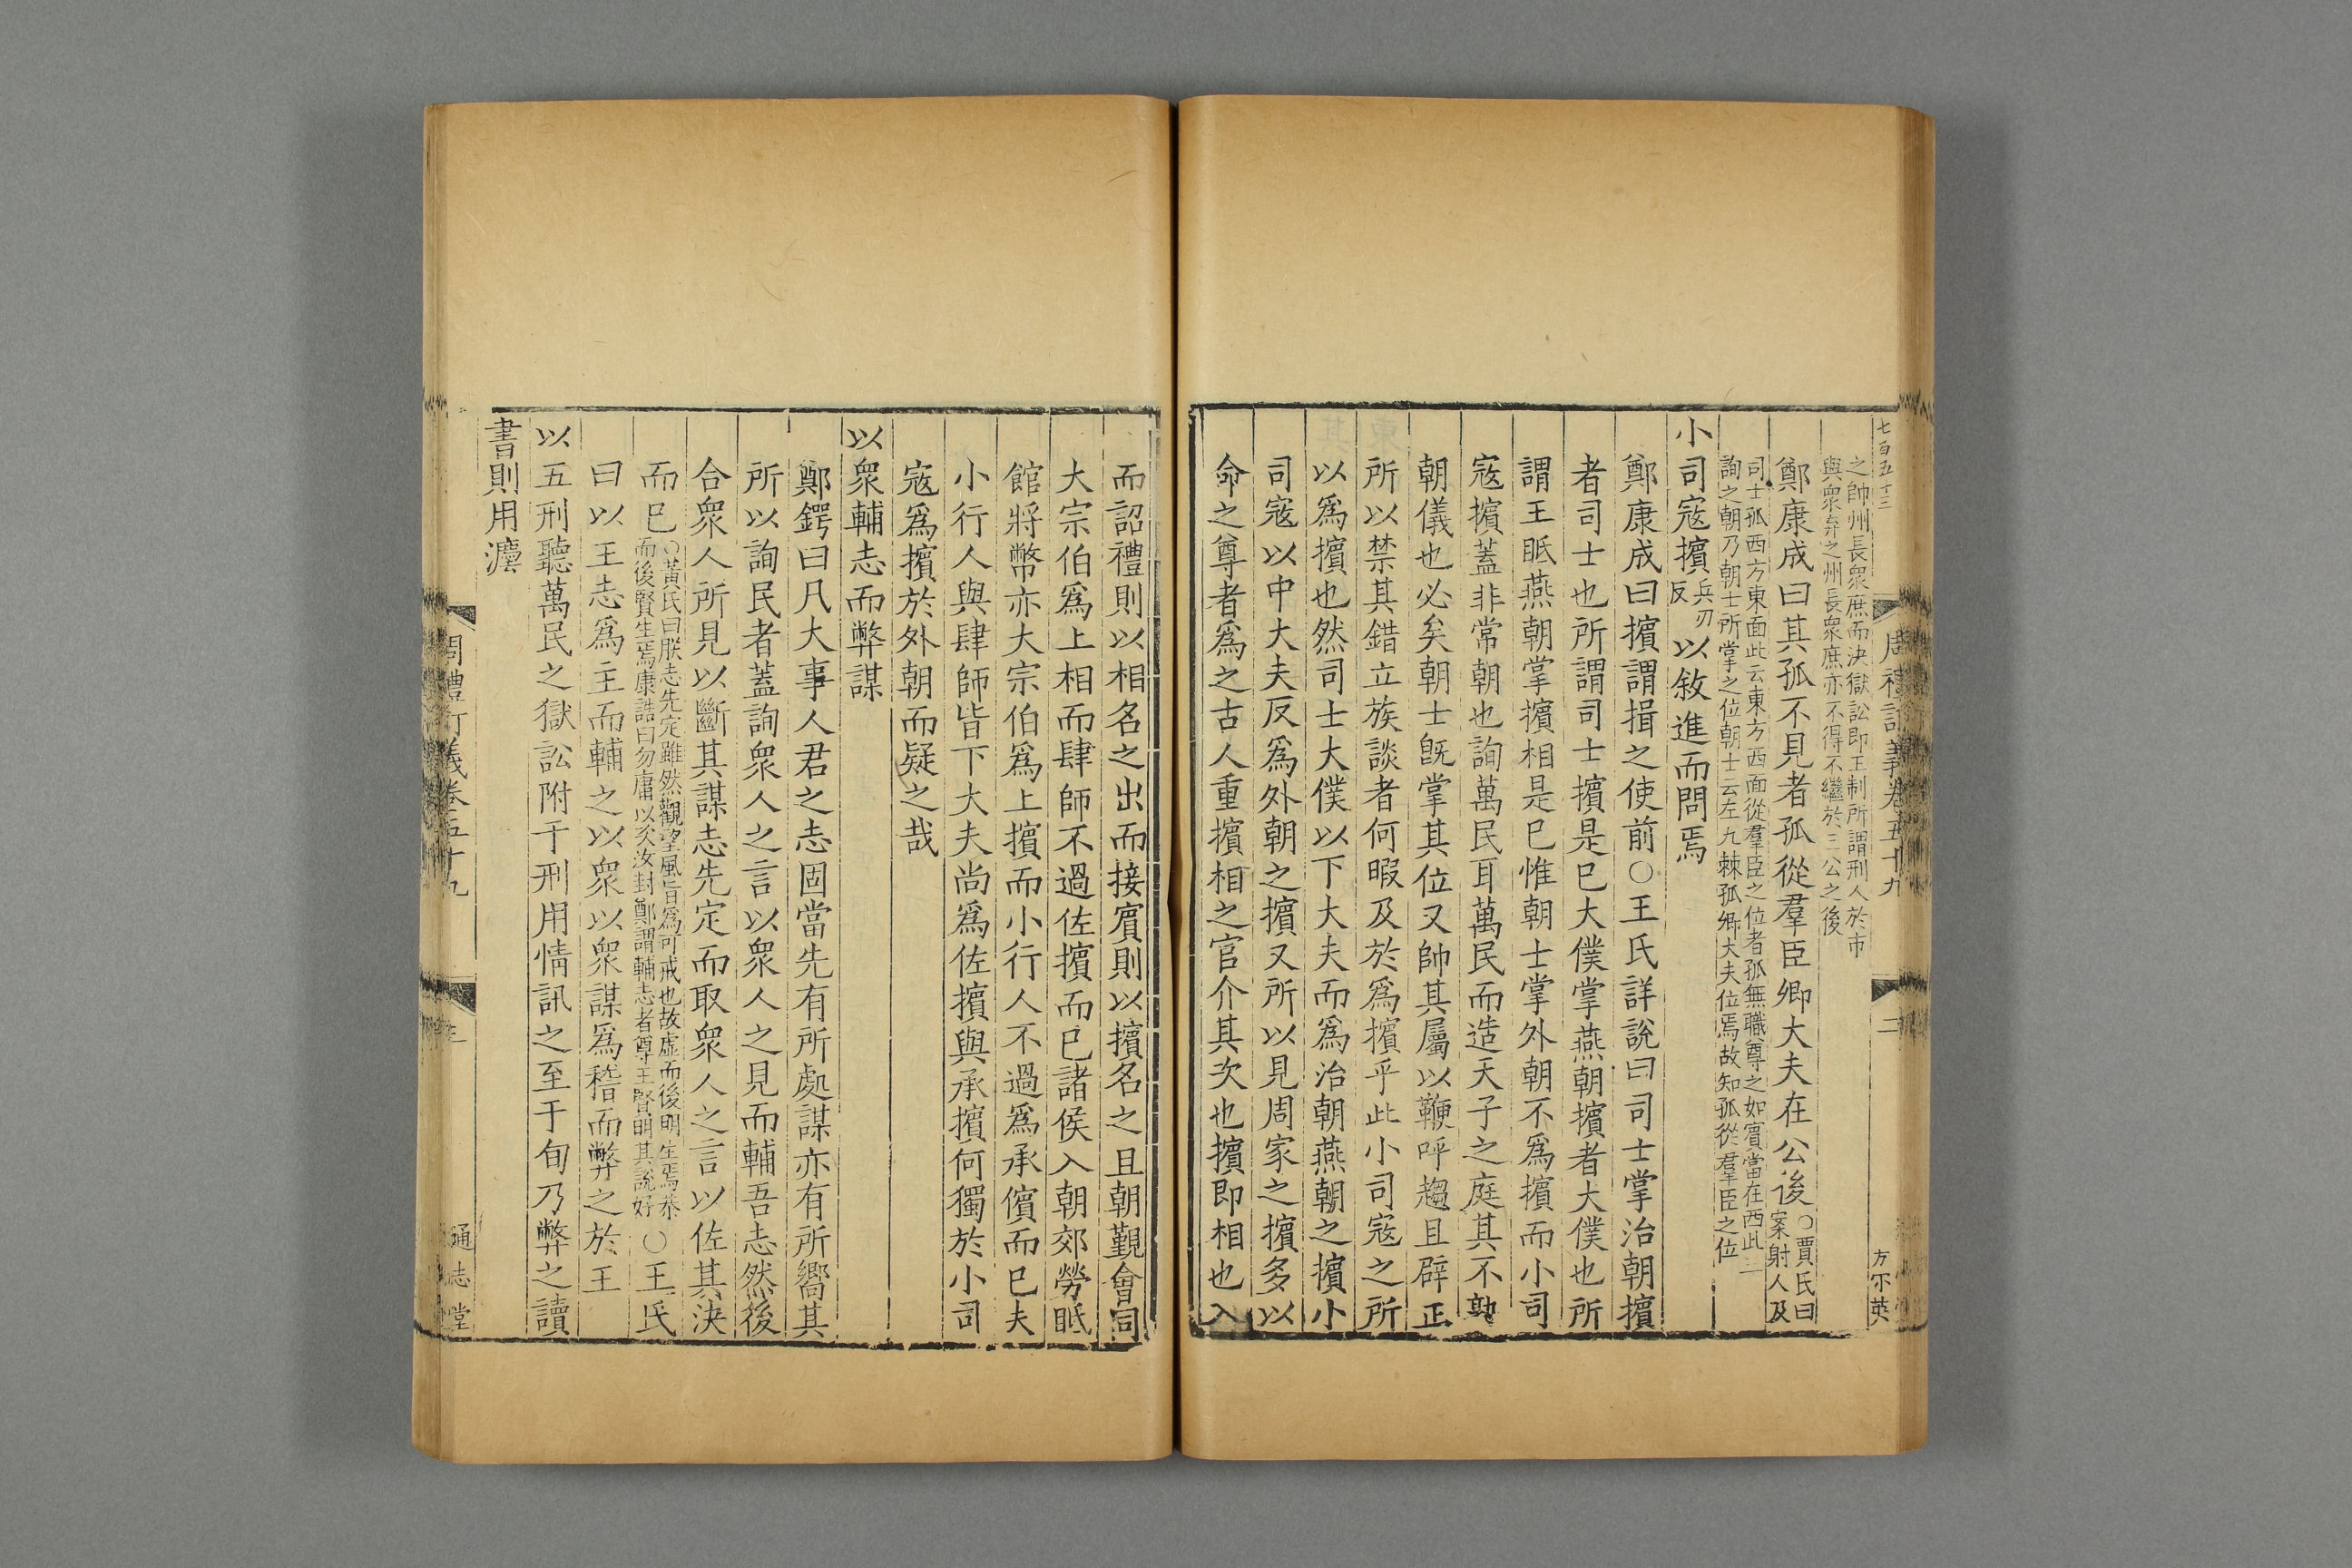 七百五十三
周禮訂義卷五十九
二
方尔英
之帥州長衆庶而決獄訟即王制所謂刑人於市
與衆弃之州長衆庶亦不得不繼於三公之後
鄭康成曰其孤不見者孤從羣臣卿大夫在公後○賈氏曰案射人及
司士孤西方東面此云東方西面從羣臣之位者孤無職尊之如賓當在西此二
詢之朝乃朝士所掌之位朝士云左九棘孤卿大夫位焉故知孤從羣臣之位
小司寇擯兵刃反以敘進而問焉
鄭康成曰擯謂揖之使前○王氏詳說曰司士掌治朝擯
者司士也所謂司士擯是巳大僕掌燕朝擯者大僕也所
謂王眡燕朝掌擯相是巳惟朝士掌外朝不爲擯而小司
寇擯蓋非常朝也詢萬民耳萬民而造天子之庭其不
朝儀也必矣朝士旣掌其位又帥其屬以鞭呼趨且辟正
所以禁其錯立族談者何暇及於爲擯乎此小司寇之所
以爲擯也然司士大僕以下大夫而爲治朝燕朝之擯小
司寇以中大夫反爲外朝之擯又所以見周家之擯多以
命之尊者爲之古人重擯相之官介其次也擯即相也入
而詔禮則以相名之出而接賓則以擯名之且朝覲會同
大宗伯爲上相而肆師不過佐擯而巳諸侯入朝郊勞眡
館將幣亦大宗伯爲上擯而小行人不過爲承儐而巳夫
小行人與肆師皆下大夫尚爲佐擯與承擯何獨於小司
寇爲擯於外朝而疑之哉
以衆輔志而弊謀
鄭鍔曰凡大事人君之志固當先有所處謀亦有所嚮其
所以詢民者蓋詢衆人之言以衆人之見而輔吾志然後
合衆人所見以斷其謀志先定而取衆人之言以佐其決
而巳○黃氏曰朕志先定雖然觀望風旨爲可戒也故虛而後明生焉恭
而後賢生焉康誥曰勿庸以次汝封鄭謂輔志者尊王賢明其說好○王氏
曰以王志爲主而輔之以衆以衆謀爲稽而弊之於王
以五刑聽萬民之獄訟附于刑用情訊之至于旬乃弊之讀
書則用灋
周禮訂義卷五十九
通志堂